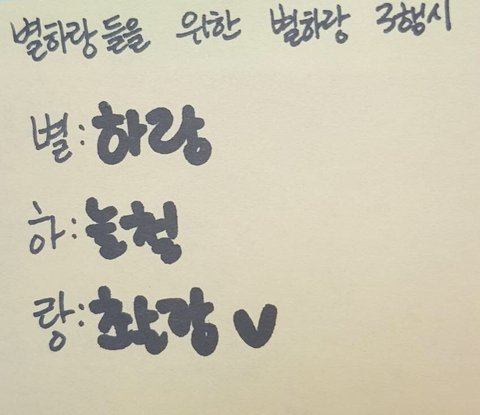 별하랑들을 위한 별하랑 3행시
별:하랑
하:
랑: